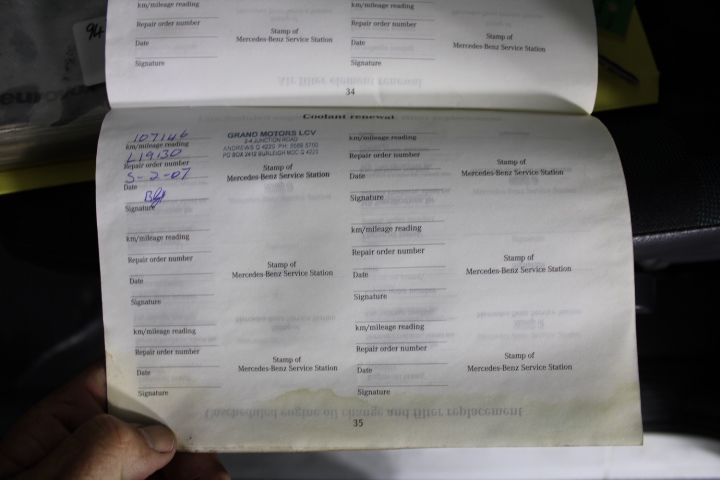 km/mileage reading
km/mileage reading
Repair order number
Repair order number
Stamp of
Mercedes-Benz Service Station
Stamp of
Mercedes-Benz Service Station
Date
Date
Signature
Signature
Air filter element renewal
34
94
Coolant renewal
107146
km/mileage reading
L19130
Repair order number
5-2-07
Date
Signature
GRAND MOTORS LCV
JUNCTION ROAD
ANDREWS Q 4220 PH
PO BOX 2412 BURLEIGH MDC Q 4220
Stamp of
Mercedes-Benz Service Station
km/mileage reading
Repair order number
Date
Signature
Stamp of
Mercedes-Benz Service Station
km/mileage reading
Repair order number
Date
Signature
Stamp of
Mercedes-Benz Service Station
km/mileage reading
Repair order number
Date
Signature
Stamp of
Mercedes-Benz Service Station
km/mileage reading
Repair order number
Date
Signature
Stamp of
Mercedes-Benz Service Station
km/mileage reading
Repair order number
Date
Signature
Stamp of
Mercedes-Benz Service Station
Unscheduled engine oil change and filter replacement
35